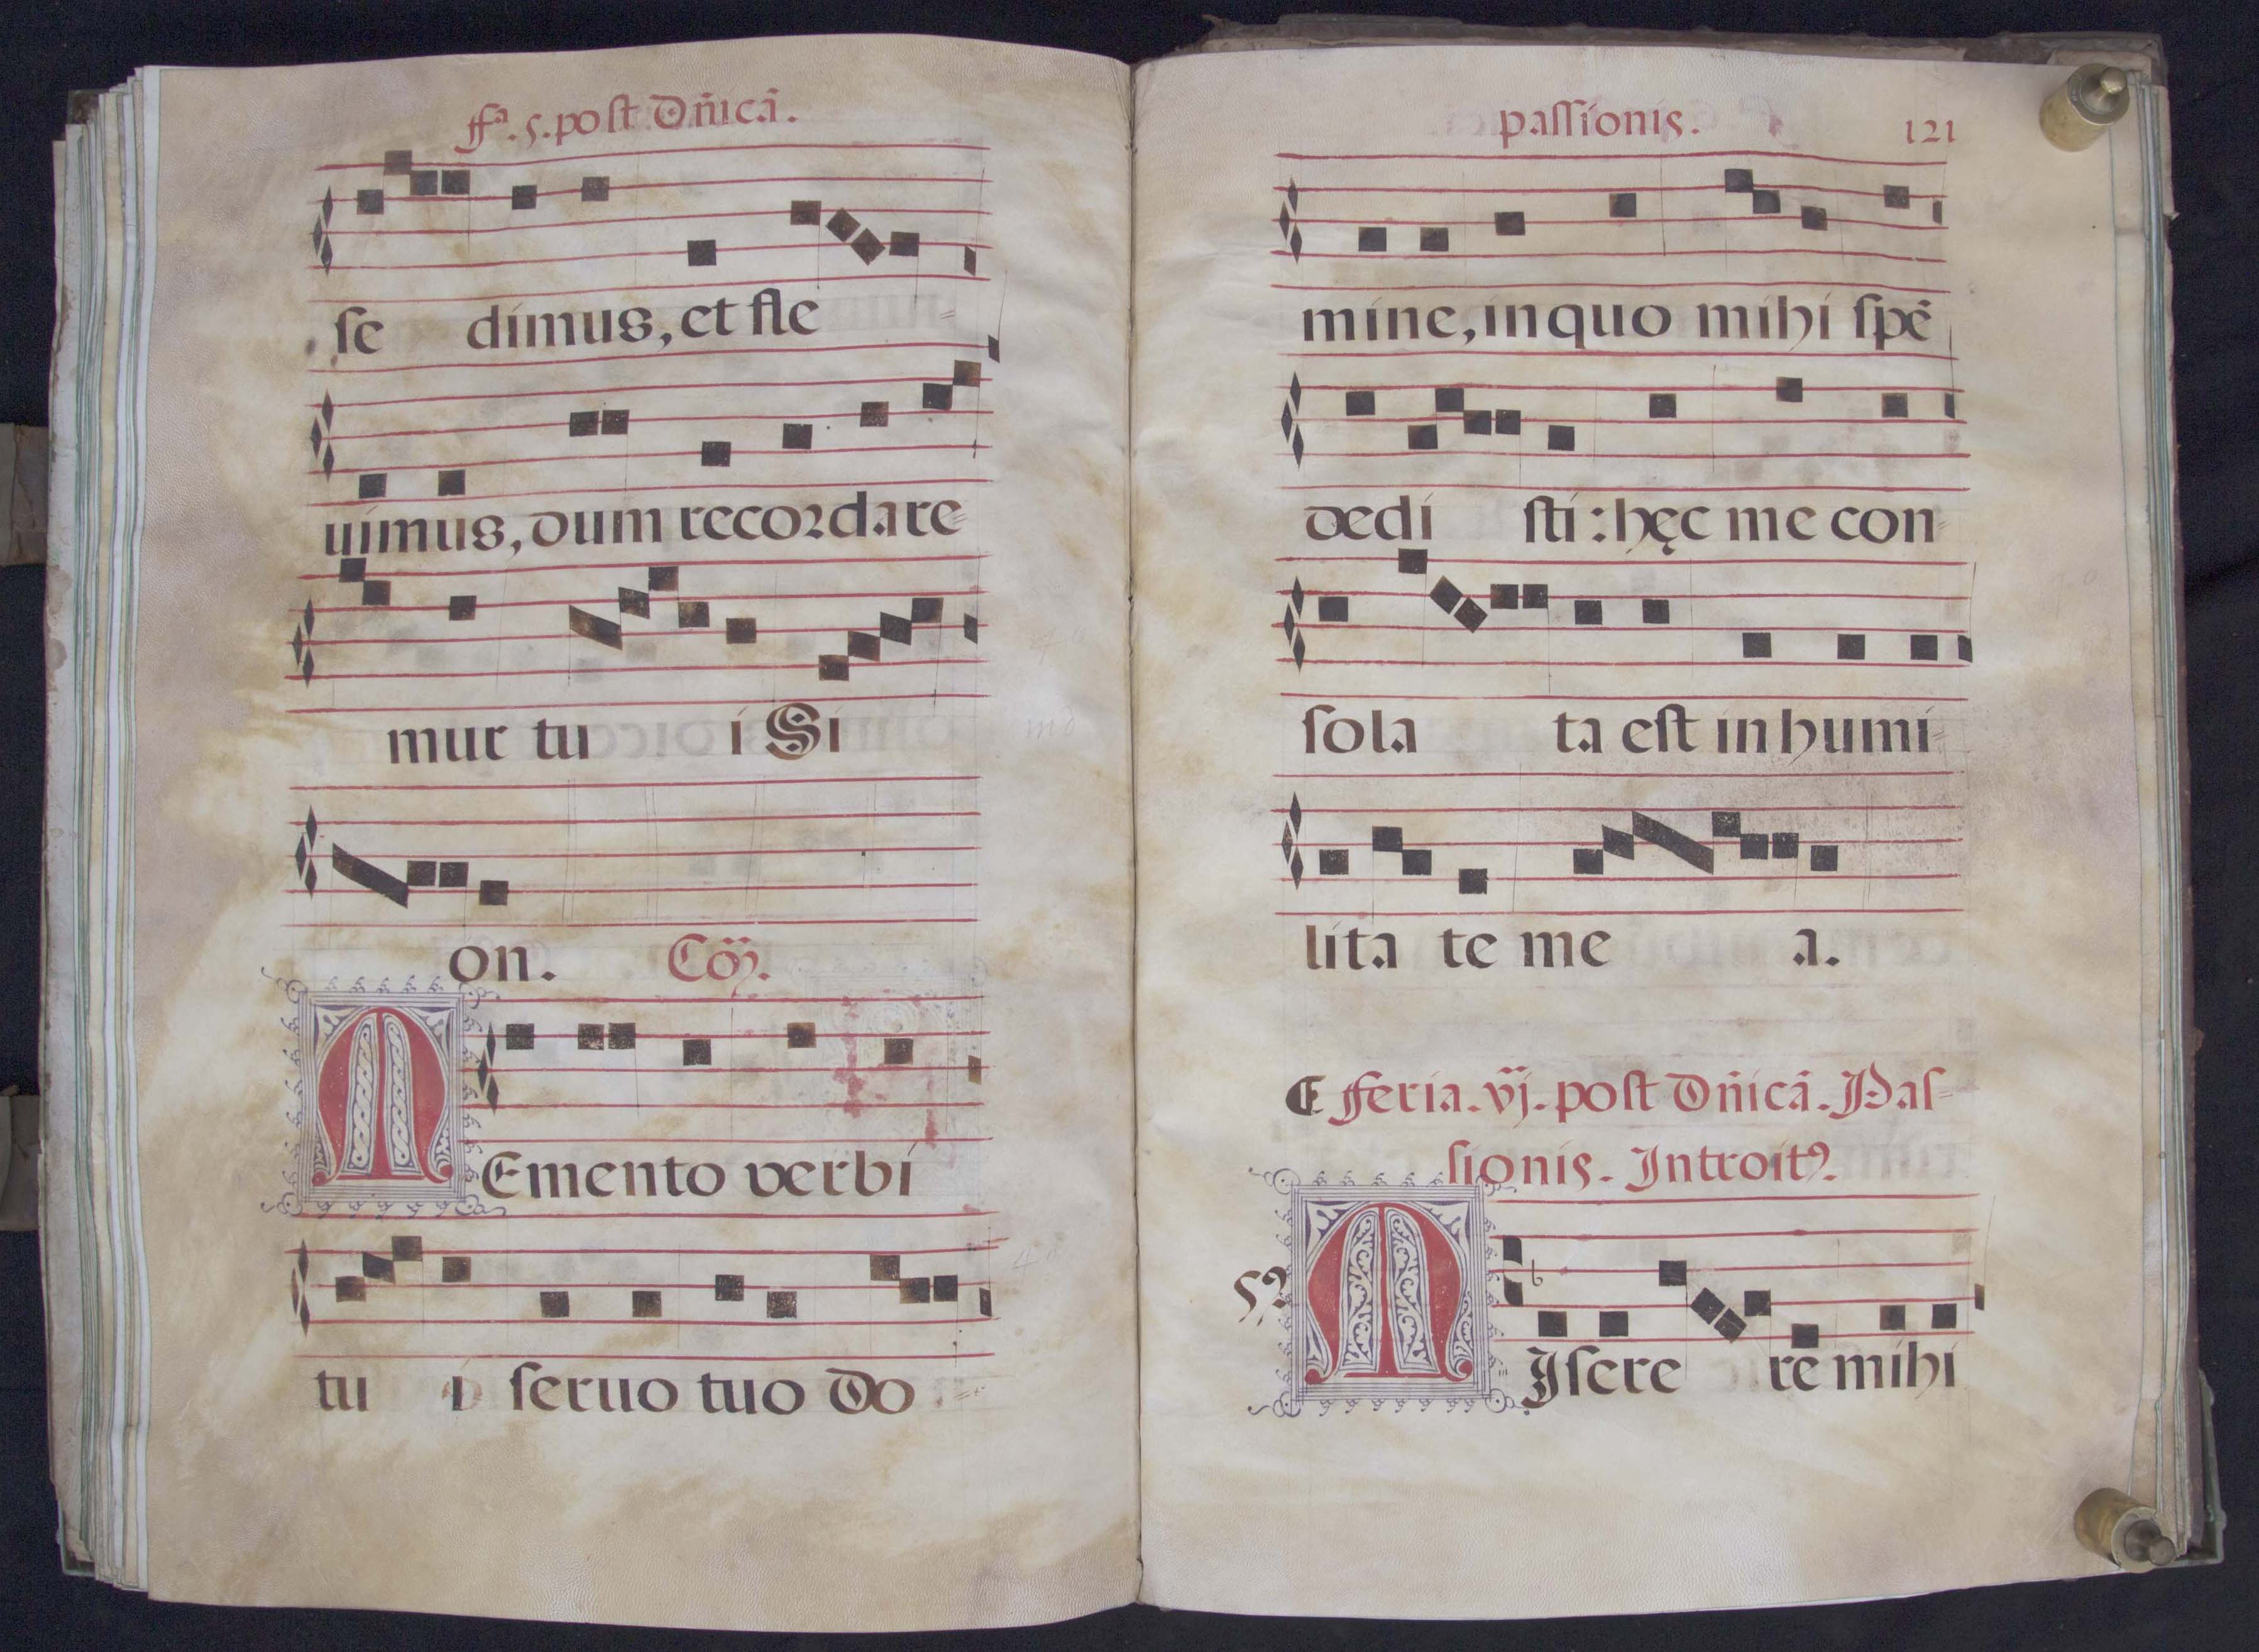 ffª. 5. post Dn̄icā.
se dimus, et fle
uimus, dum recordare
mur tu i Si
on. Cōꝫ.
MEmento verbi
tu i seruo tuo Do
passionis. 121
mine, in quo mihi spē
dedi sti: hęc me con
sola ta est in humi
lita te me a.
feria. vj. post Dn̄icā. Pas
sionis. Introitꝰ.
MIsere re mihi